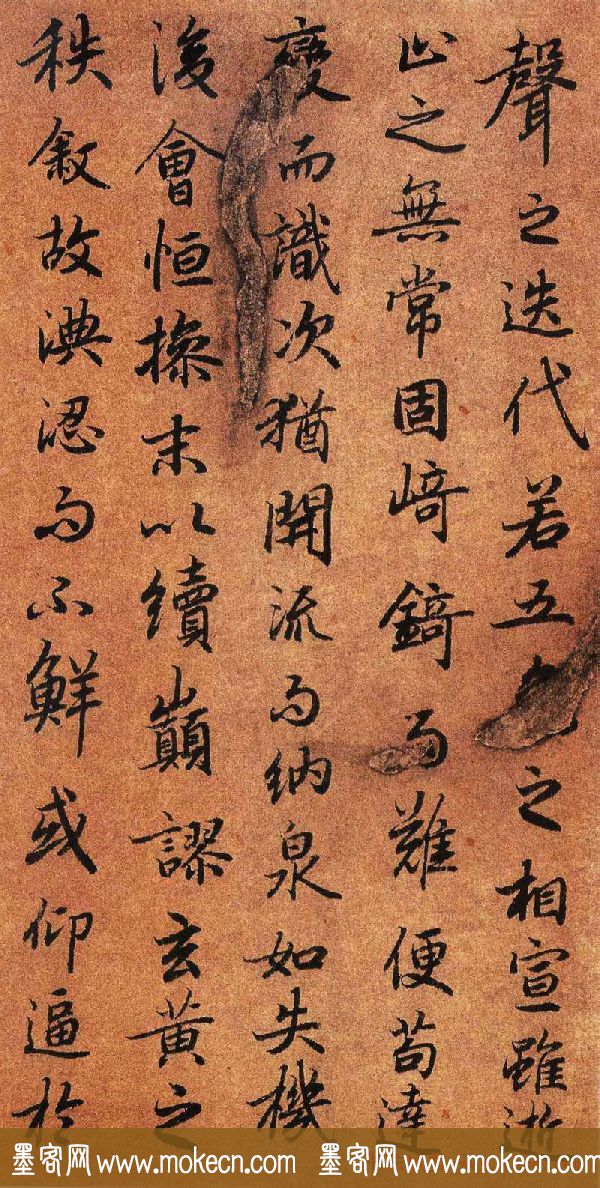 聲之迭代若五色之相宣雖逝
止之無常固崎錡而難便苟達
變而識次猶開流而納泉如失機
後會恒操末以續巔謬玄黃之
秩敘故淟涊而不鮮或仰逼於
墨客网 www.mokecn.com 墨客网 www.mokecn.com